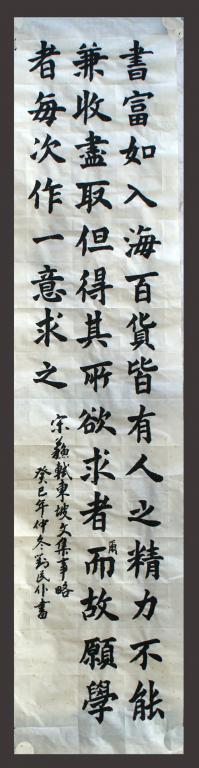 書富如入海百貨皆有人之精力不能
兼收盡取但得其所欲求者爾而故願學
者每次作一意求之
宋蘇軾東坡文集事略
癸巳年仲冬劉民仆書